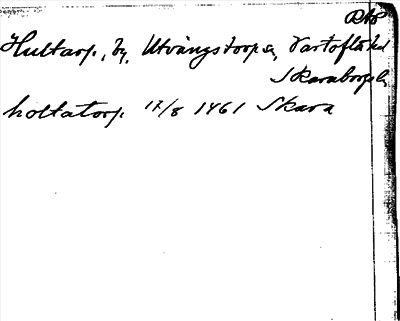 RAP
Hultarp, by, Utvängstorp sn, Vartofta hd
Skaraborgs l.
holtatorp 17/8 1461 Skara